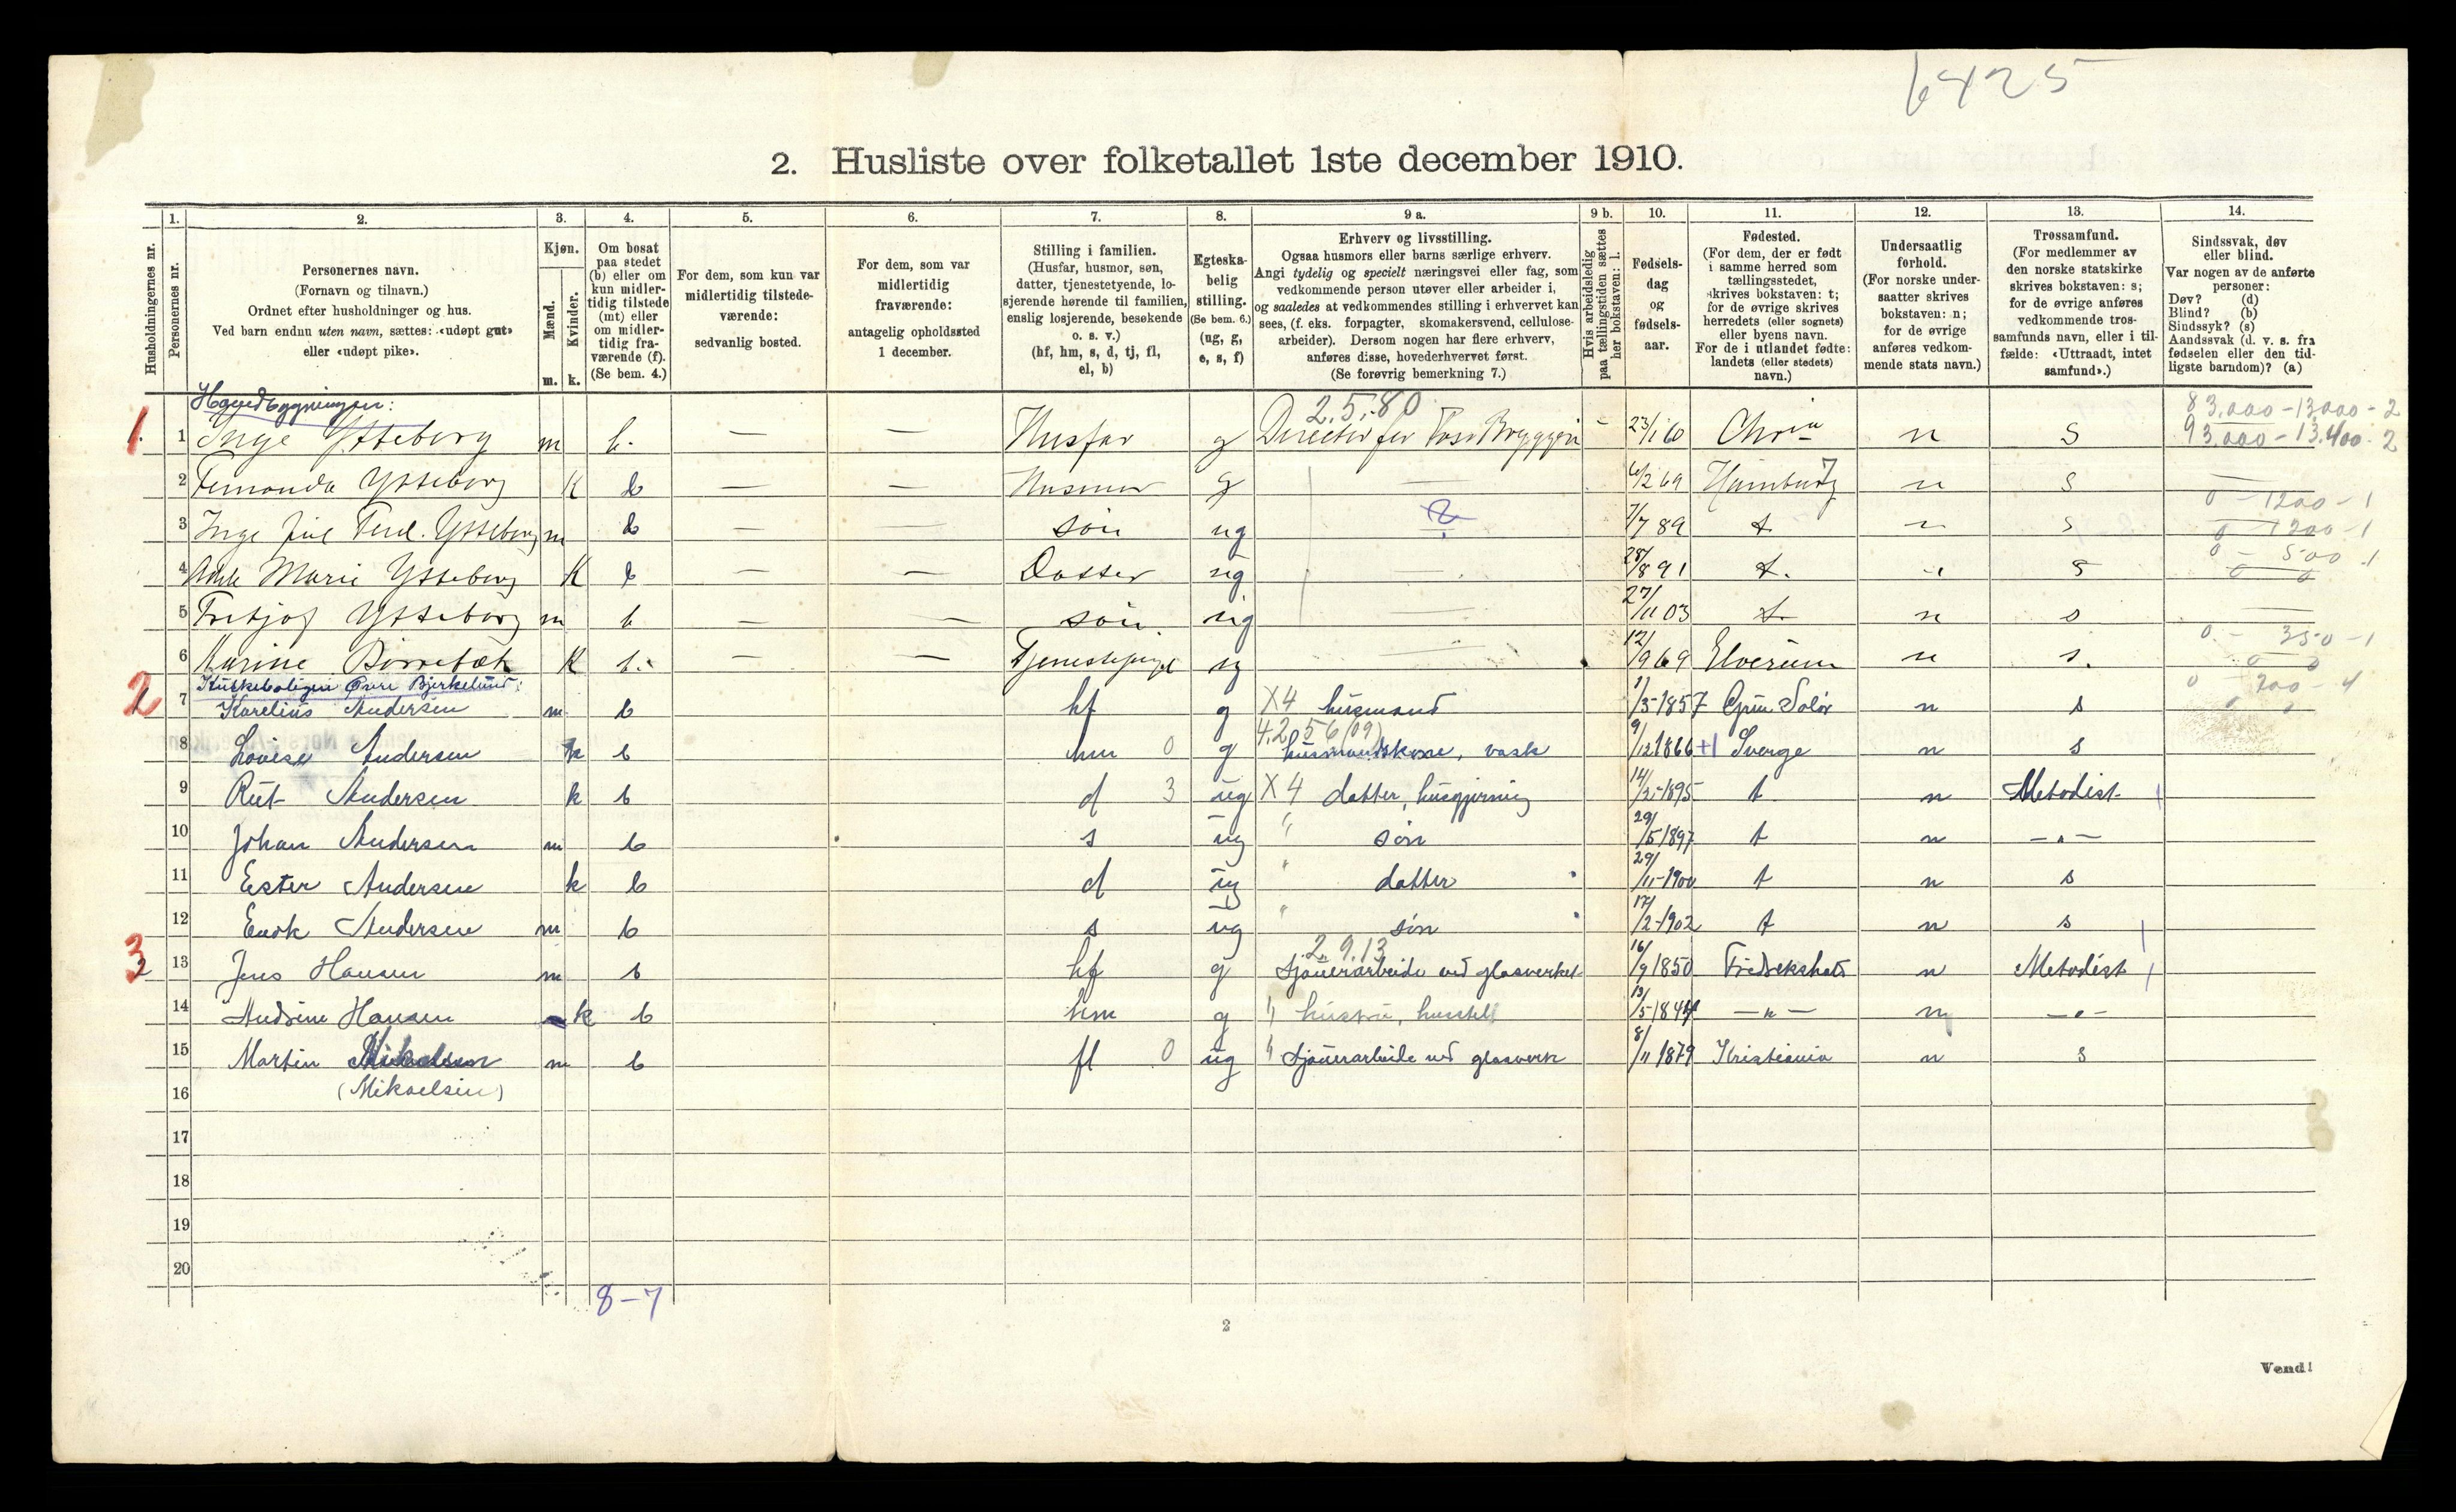 6425
2. Husliste over folketallet 1ste december 1910.
1. 2. 3. 4. 5. 6. 7. 8. 9 a. 9 b. 10. 11. 12. 13. 14.
Husholdningernes nr.
Personernes nr.
Personernes navn.
(Fornavn og tilnavn.)
Ordnet efter husholdninger og hus.
Ved barn endnu uten navn, sættes: «udøpt gut»
eller «udøpt pike».
Kjøn.
Mænd.
Kvinder.
m. k.
Om bosat
paa stedet
(b) eller om
kun midler-
tidig tilstede
(mt) eller
om midler-
tidig fra-
værende (f).
(Se bem. 4.)
For dem, som kun var
midlertidig tilstede-
værende:
sedvanlig bosted.
For dem, som var
midlertidig
fraværende:
antagelig opholdssted
1 december.
Stilling i familien.
(Husfar, husmor, søn,
datter, tjenestetyende, lo-
sjerende hørende til familien,
enslig losjerende, besøkende
o. s. v.)
(hf, hm, s, d, tj, fl,
el, b)
Egteska-
belig
stilling.
(Se bem. 6.)
(ug, g,
e, s, f)
Erhverv og livsstilling.
Ogsaa husmors eller barns særlige erhverv.
Angi tydelig og specielt næringsvei eller fag, som
vedkommende person utøver eller arbeider i,
og saaledes at vedkommendes stilling i erhvervet kan
sees, (f. eks. forpagter, skomakersvend, cellulose-
arbeider). Dersom nogen har flere erhverv,
anføres disse, hovederhvervet først.
(Se forøvrig bemerkning 7.)
Hvis arbeidsledig
paa tællingstiden sættes
her bokstaven: l.
Fødsels-
dag
og
fødsels-
aar.
Fødested.
(For dem, der er født
i samme herred som
tællingsstedet,
skrives bokstaven: t;
for de øvrige skrives
herredets (eller sognets)
eller byens navn.
For de i utlandet fødte:
landets (eller stedets)
navn.)
Undersaatlig
forhold.
(For norske under-
saatter skrives
bokstaven: n;
for de øvrige
anføres vedkom-
mende stats navn.)
Trossamfund.
(For medlemmer av
den norske statskirke
skrives bokstaven: s;
for de øvrige anføres
vedkommende tros-
samfunds navn, eller i til-
fælde: «Uttraadt, intet
samfund».)
Sindssvak, døv
eller blind.
Var nogen av de anførte
personer:
Døv? (d)
Blind? (b)
Sindssyk? (s)
Aandssvak (d. v. s. fra
fødselen eller den tid-
ligste barndom)? (a)
Hovedbygningen: 2.5.80 83.000 - 13000 - 2
1. 1 Inge Ytteborg m b. — — Husfar g Director for 23/1 60 Chria n s 93.000 - 13.400 - 2
2 Ytteborg K b — — Husmor g — 6/2 69 Hamburg n s —
0 - 1200 - 1
3 Inge Ytteborg m b — — søn ug 7/7 89 t n s 0 1200 - 1
0 - 500 - 1
4 Marie Ytteborg K b — — Datter ug — 28/8 91 t. n s 0 0
5 Fritjof Ytteborg m b — — søn ug — 27/11 03 t n s —
0 - 350 - 1
6 Karine K b. — — ug — 12/9 69 Elverum n s. 0 0
Kuskeboligen Øvre Bjerkelund: 0 700 - 4
2 7 Karelius Andersen m b hf g X4 husmand 1/3-1857 Grue Solør n s
4.2.56 (09)
8 Lovise Andersen k b hm 0 g husmandskone, vask 9/12 1866 +1 Sverge n s
9 Rut Andersen k b d 3 ug X4 datter, husgjerning 14/2-1895 t n Metodist
10 Johan Andersen m b s ug " søn 29/5 1897 t n —"—
11 Ester Andersen k b d ug " datter 29/11-1900 t n s
12 Enok Andersen m b s ug " søn 17/2-1902 t n s
2.9.13
3 2 13 Jens Hansen m b hf g Sjauerarbeide ved glasverket 16/9 1850 Fredrekshald n Metodist
14 Andrine Hansen k b hm g " hustru, husstel 13/5-1844 —"— n —"—
15 Martin Mikaelsen m b fl 0 ug " Sjauerarbeide ved glasverk 8/11 1879 Kristiania n s
16 (Mikaelsen)
17
18
19
20
8-7
2
Vend!